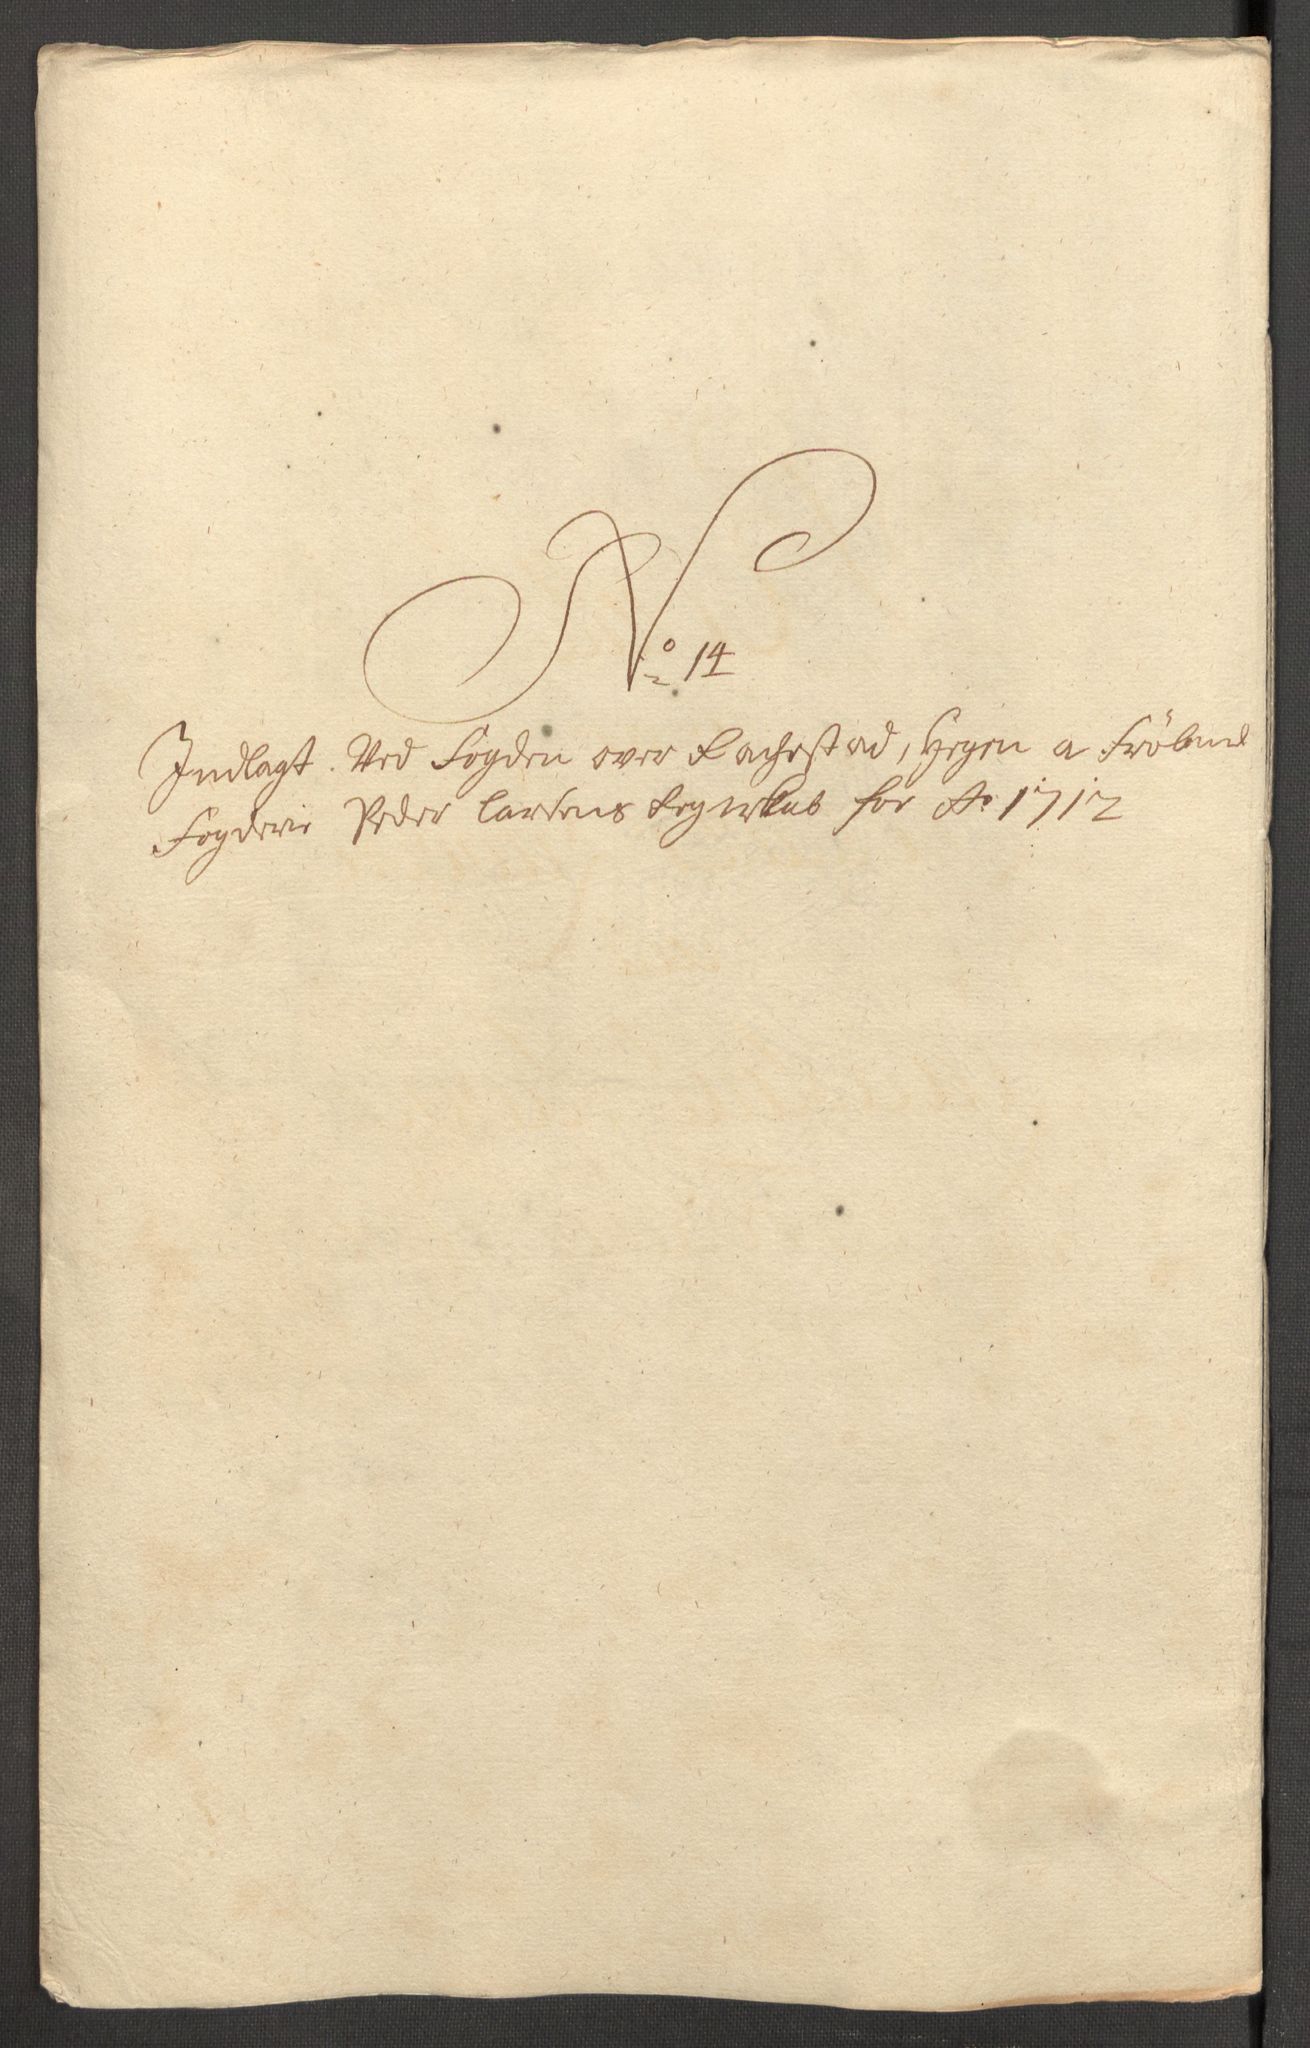 No 14
Indlagt. Ved Fogden over Rachestad, Hegen a Fröland
Fogderie Peder Larsens Regnskab for Ao 1712